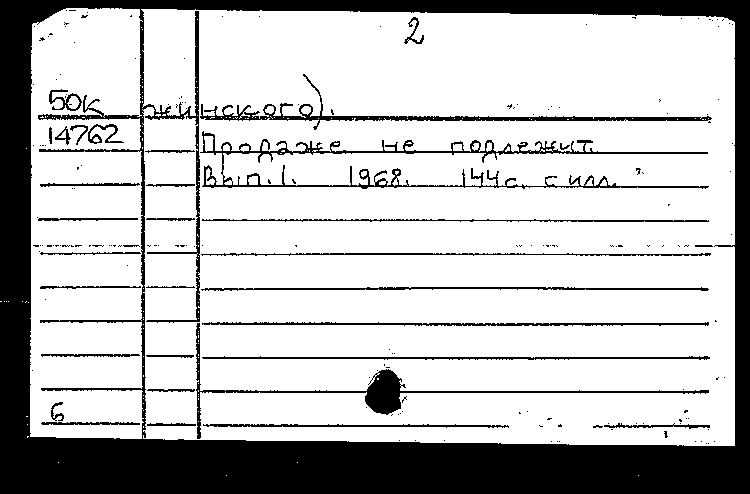 2
50к жинского).
14762 Продаже не подлежит.
Вып.1. 1968. 144с. с илл.
6